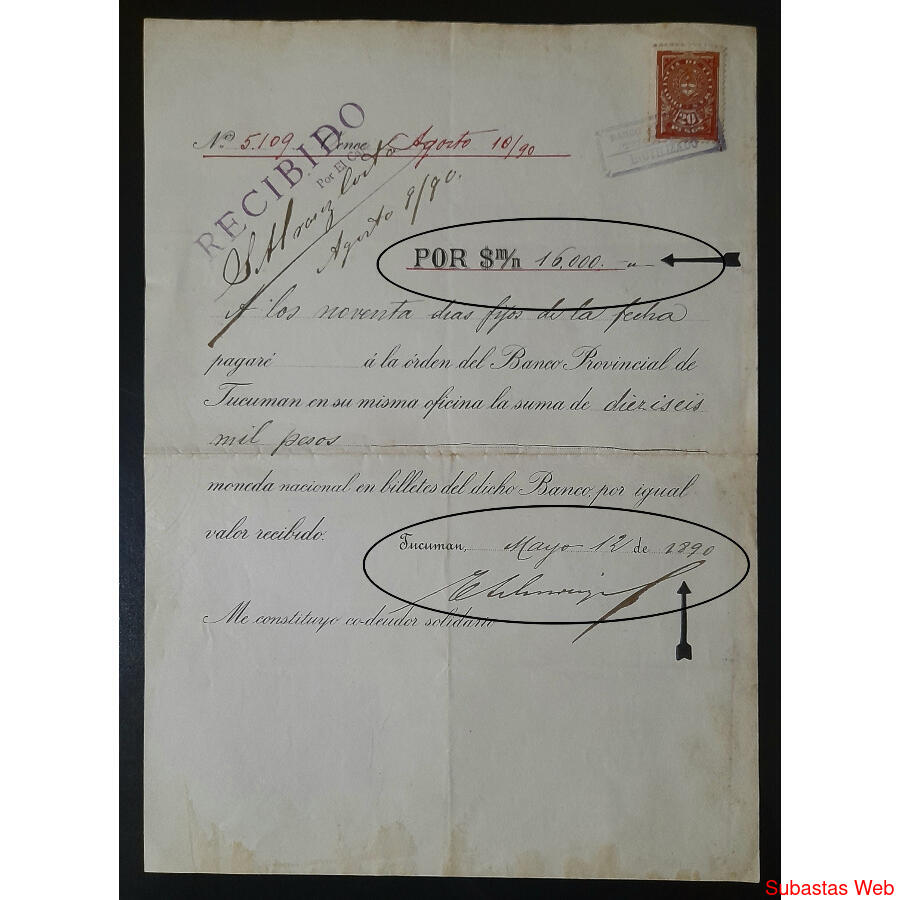 20
PESOS
Nº 5109 Vence Agosto 10/90
RECIBIDO
Por El
Agosto 9/90.
POR $m/n 16,000.
A los noventa dias fijos de la fecha
pagaré á la órden del Banco Provincial de
Tucuman en su misma oficina la suma de dieziseis
mil pesos
moneda nacional en billetes del dicho Banco, por igual
valor recibido.
Tucuman, Mayo 12 de 1890
Me constituyo co-deudor solidario
Subastas Web